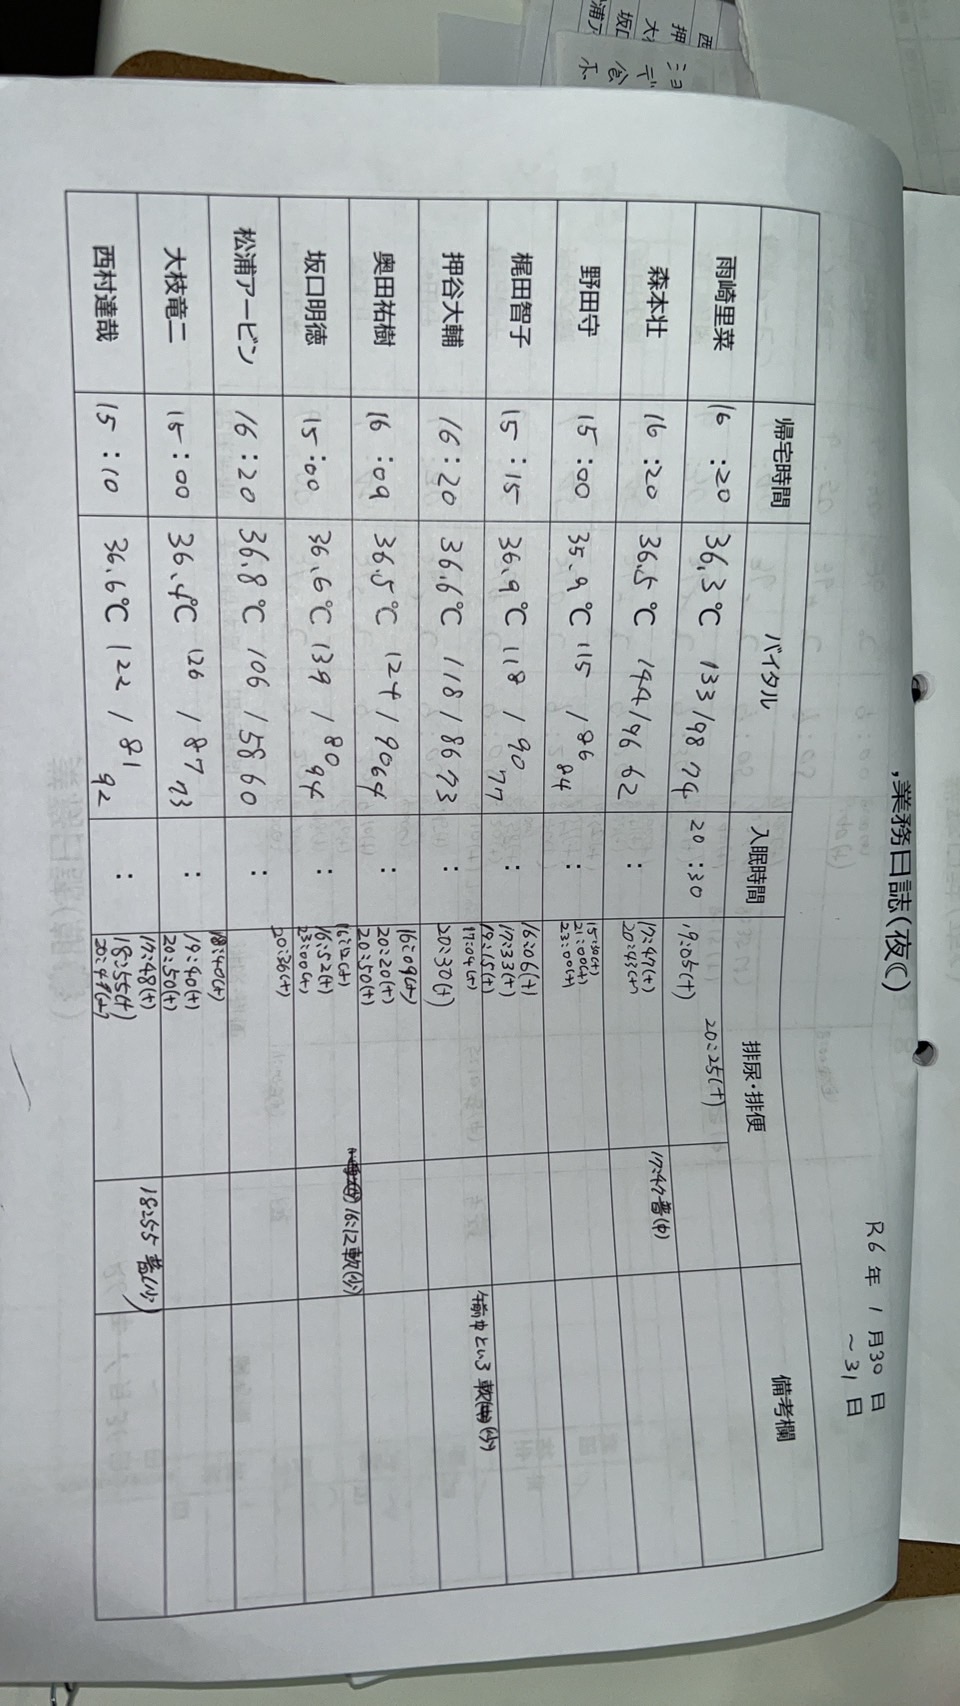 業務日誌(夜()
R6年 1月30日
～31日
帰宅時間 バイタル 入眠時間 排尿・排便 備考欄
雨崎里菜 16:20 36.3℃ 133/98 74 20:30 19:05(+) 20:25(+)
森本壮 16:20 36.5℃ 144/96 62 : 17:47(+) 17:47普(中)
20:43(+)
野田守 15:00 35.9℃ 115/86 84 : 15:30(+)
21:00(+)
23:00(+)
梶田智子 15:15 36.9℃ 118/90 77 : 16:06(+)
17:33(+)
19:15(+)
午前中という 軟 (少)
押谷大輔 16:20 36.6℃ 118/86 73 : 17:04(+)
20:30(+)
奥田祐樹 16:09 36.5℃ 124/90 64 : 16:09(+)
20:20(+)
20:50(+)
坂口明徳 15:00 36.6℃ 139/80 94 : 16:12(+) 16:12軟(少)
16:52(+)
23:00(+)
松浦アービン 16:20 36.8℃ 106/58 60 : 20:36(+)
大枝竜二 15:00 36.4℃ 126/87 73 : 18:40(+)
19:40(+)
20:50(+)
西村達哉 15:10 36.6℃ 122/81 92 : 17:48(+) 18:55普(少)
18:55(+)
20:49(+)